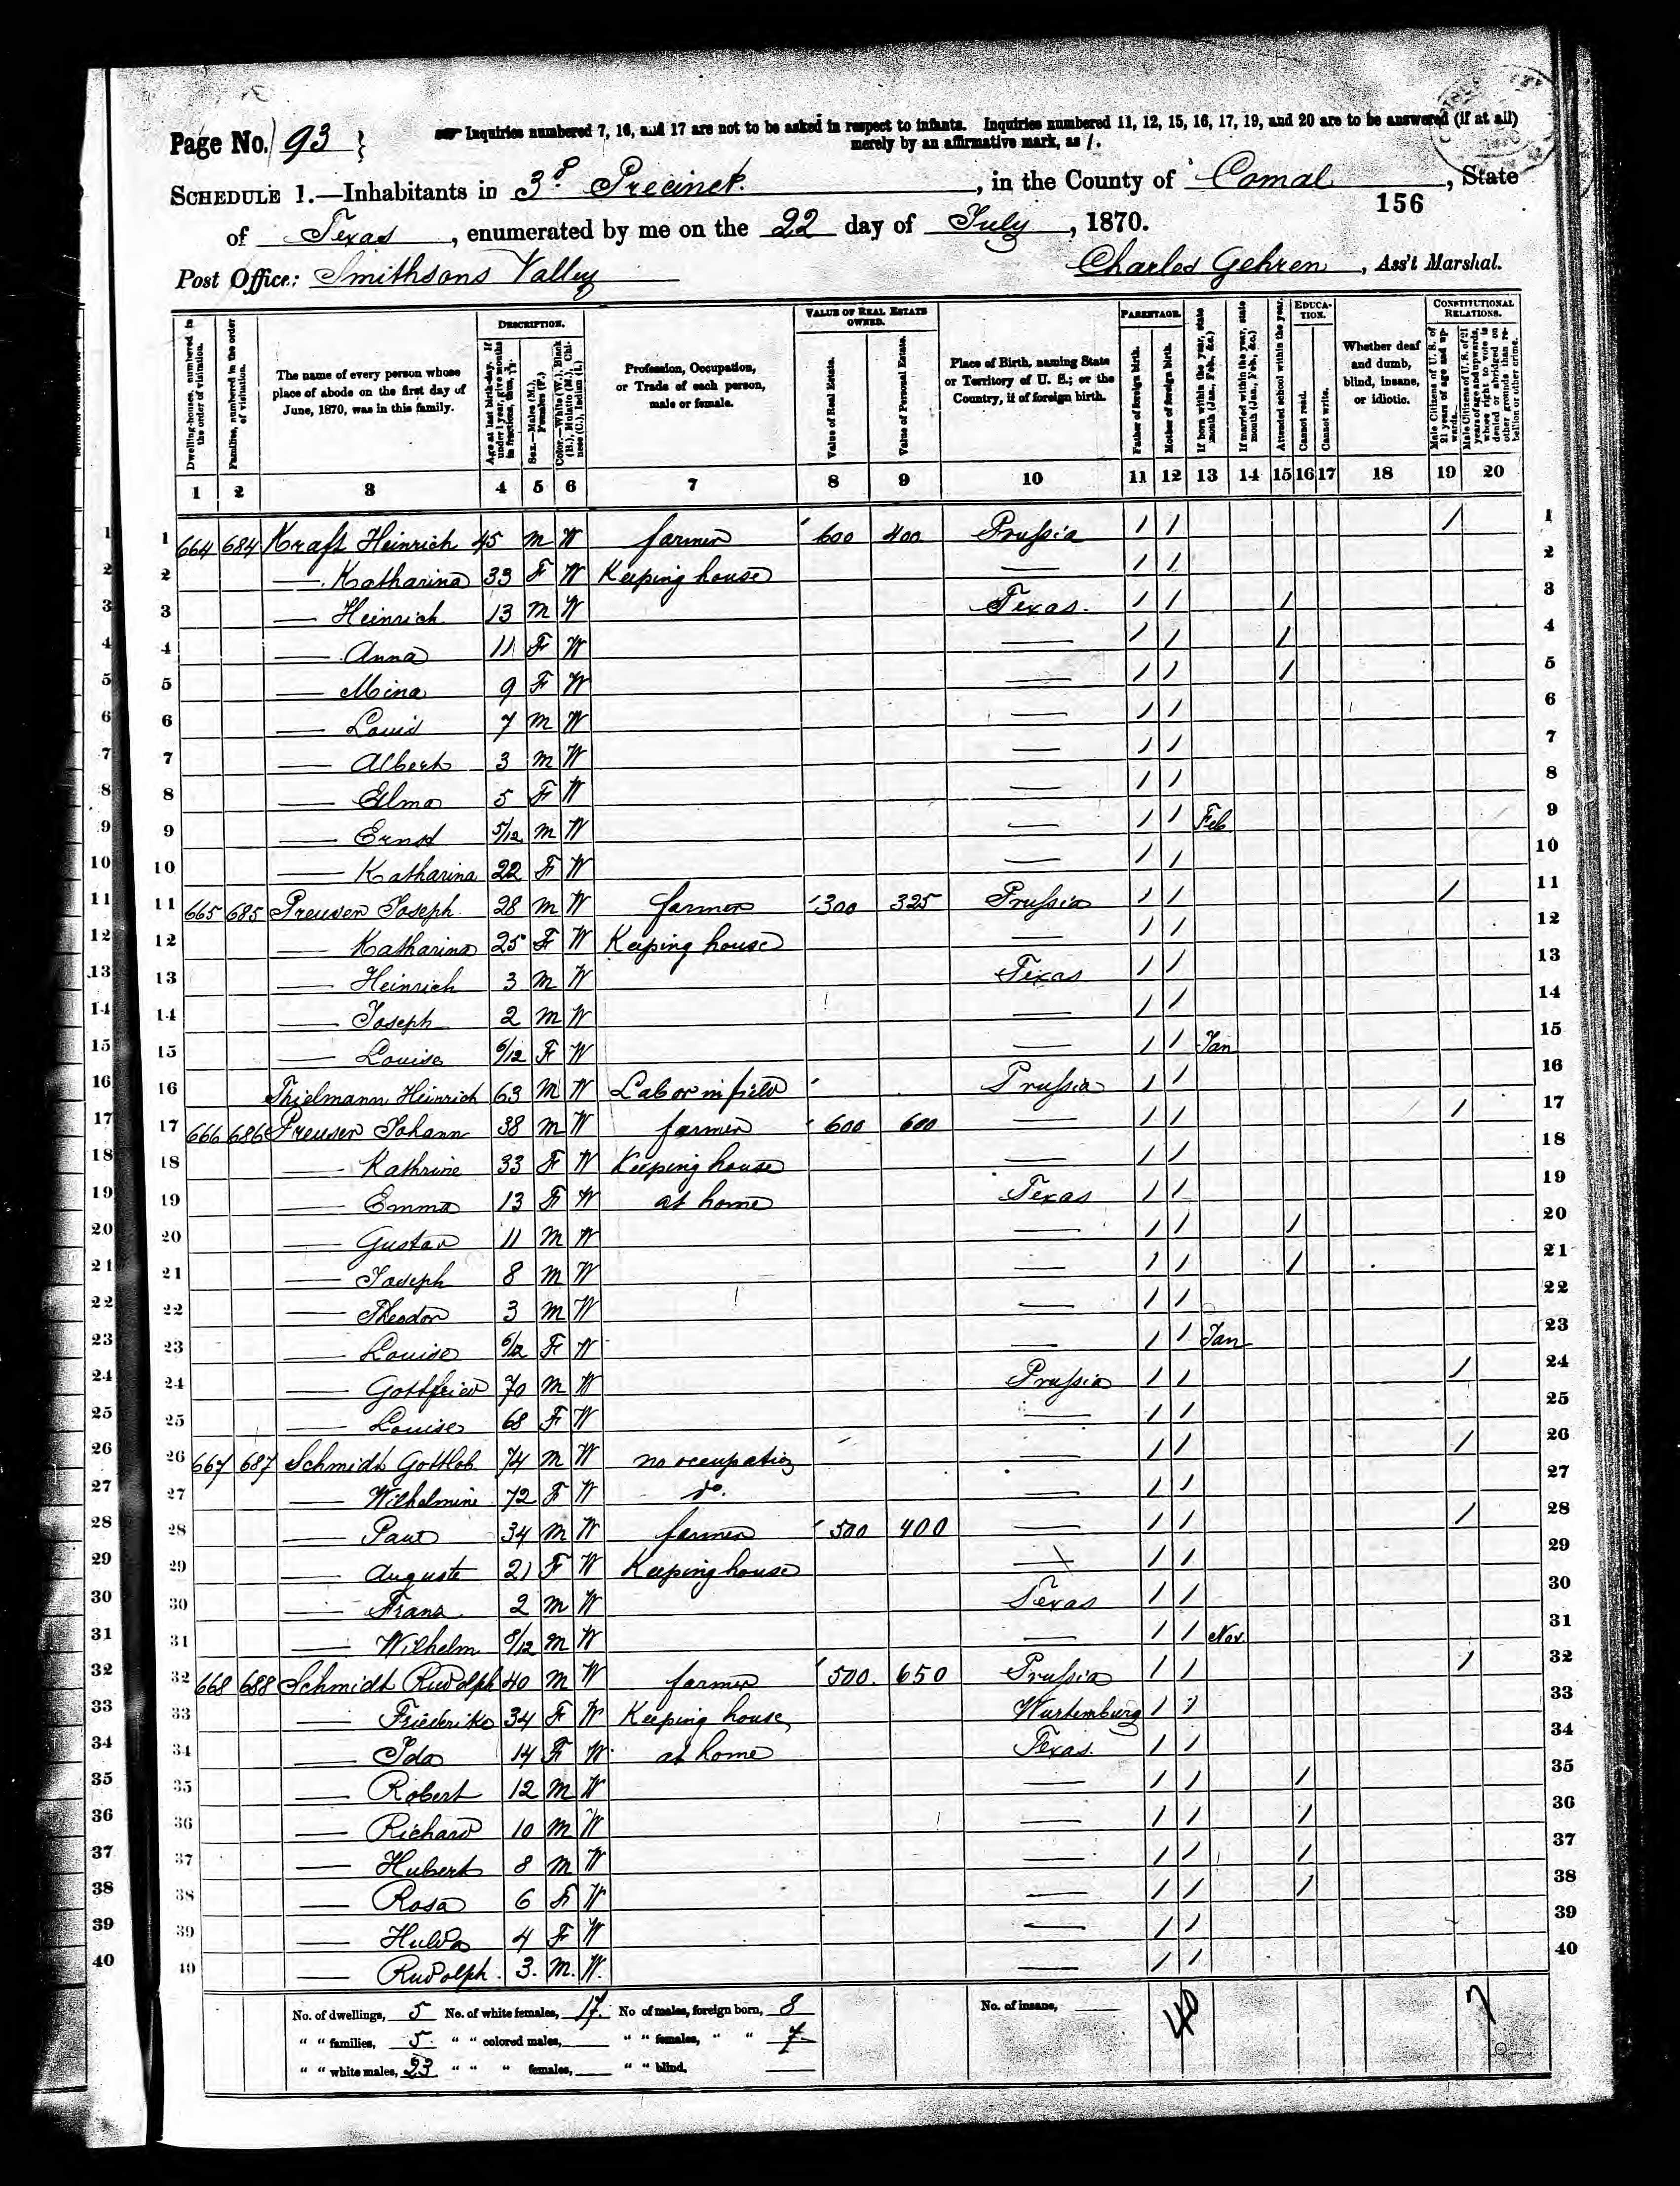 Page No. 93 } Inquiries numbered 7, 16, and 17 are not to be asked in respect to infants. Inquiries numbered 11, 12, 15, 16, 17, 19, and 20 are to be answered (if at all)
merely by an affirmative mark, as /.
SCHEDULE 1.—Inhabitants in 3d Precinct, in the County of Comal, State
156
of Texas, enumerated by me on the 22 day of July, 1870.
Post Office: Smithsons Valley Charles Gehren, Ass't Marshal.
Dwelling-houses, numbered in the order of visitation.
Families, numbered in the order of visitation.
The name of every person whose place of abode on the first day of June, 1870, was in this family.
DESCRIPTION.
Age at last birth-day. If under 1 year, give months in fractions, thus, 3/12.
Sex.—Males (M.), Females (F.)
Color.—White (W.), Black (B.), Mulatto (M.), Chinese (C.), Indian (I.)
Profession, Occupation, or Trade of each person, male or female.
VALUE OF REAL ESTATE OWNED.
Value of Real Estate.
Value of Personal Estate.
Place of Birth, naming State or Territory of U. S.; or the Country, if of foreign birth.
PARENTAGE.
Father of foreign birth.
Mother of foreign birth.
If born within the year, state month (Jan., Feb., &c.)
If married within the year, state month (Jan., Feb., &c.)
Attended school within the year.
EDUCATION.
Cannot read.
Cannot write.
Whether deaf and dumb, blind, insane, or idiotic.
CONSTITUTIONAL RELATIONS.
Male Citizens of U. S. of 21 years of age and upwards.
Male Citizens of U. S. of 21 years of age and upwards, whose right to vote is denied or abridged on other grounds than rebellion or other crime.
1 2 3 4 5 6 7 8 9 10 11 12 13 14 15 16 17 18 19 20
1 664 684 Kraft Heinrich 45 M W farmer 600 400 Prussia / / / 1
2 — Katharina 33 F W Keeping house — / / 2
3 — Heinrich 13 M W Texas. / / / 3
4 — Anna 11 F W — / / / 4
5 — Mina 9 F W — / / / 5
6 — Louis 7 M W — / / 6
7 — Albert 3 M W — / / 7
8 — Elma 5 F W — / / 8
9 — Ernst 5/12 M W — / / Feb 9
10 — Katharina 22 F W — / / 10
11 665 685 Preusen Joseph 28 M W farmer 300 325 Prussia / / / 11
12 — Katharina 25 F W Keeping house — / / 12
13 — Heinrich 3 M W Texas / / 13
14 — Joseph 2 M W — / / 14
15 — Louise 6/12 F W — / / Jan 15
16 Thielmann Heinrich 63 M W Labor in field Prussia / / 16
17 666 686 Preusen Johann 38 M W farmer 600 600 — / / / 17
18 — Kathrine 33 F W Keeping house — / / 18
19 — Emma 13 F W at home Texas / / 19
20 — Gustav 11 M W — / / / 20
21 — Joseph 8 M W — / / / 21
22 — Theodor 3 M W — / / 22
23 — Louise 6/12 F W — / / Jan 23
24 — Gottfried 70 M W Prussia / / / 24
25 — Louise 68 F W — / / 25
26 667 687 Schmidt Gottlob 74 M W no occupation — / / / 26
27 — Wilhelmine 72 F W do. — / / 27
28 — Paul 34 M W farmer 500 400 — / / / 28
29 — Auguste 21 F W Keeping house — / / 29
30 — Franz 2 M W Texas / / 30
31 — Wilhelm 8/12 M W — / / Nov. 31
32 668 688 Schmidt Rudolph 40 M W farmer 500. 650 Prussia / / / 32
33 — Friederike 34 F W Keeping house Wurtemburg / / 33
34 — Ida 14 F W at home Texas. / / 34
35 — Robert 12 M W — / / / 35
36 — Richard 10 M W — / / / 36
37 — Hubert 8 M W — / / / 37
38 — Rosa 6 F W — / / / 38
39 — Hulda 4 F W — / / 39
40 — Rudolph. 3. M. W. — / / 40
No. of dwellings, 5 No. of white females, 17 No of males, foreign born, 8 No. of insane, 40 7
" " families, 5 " " colored males, " " females, " " 7
" " white males, 23 " " " females, " " blind,